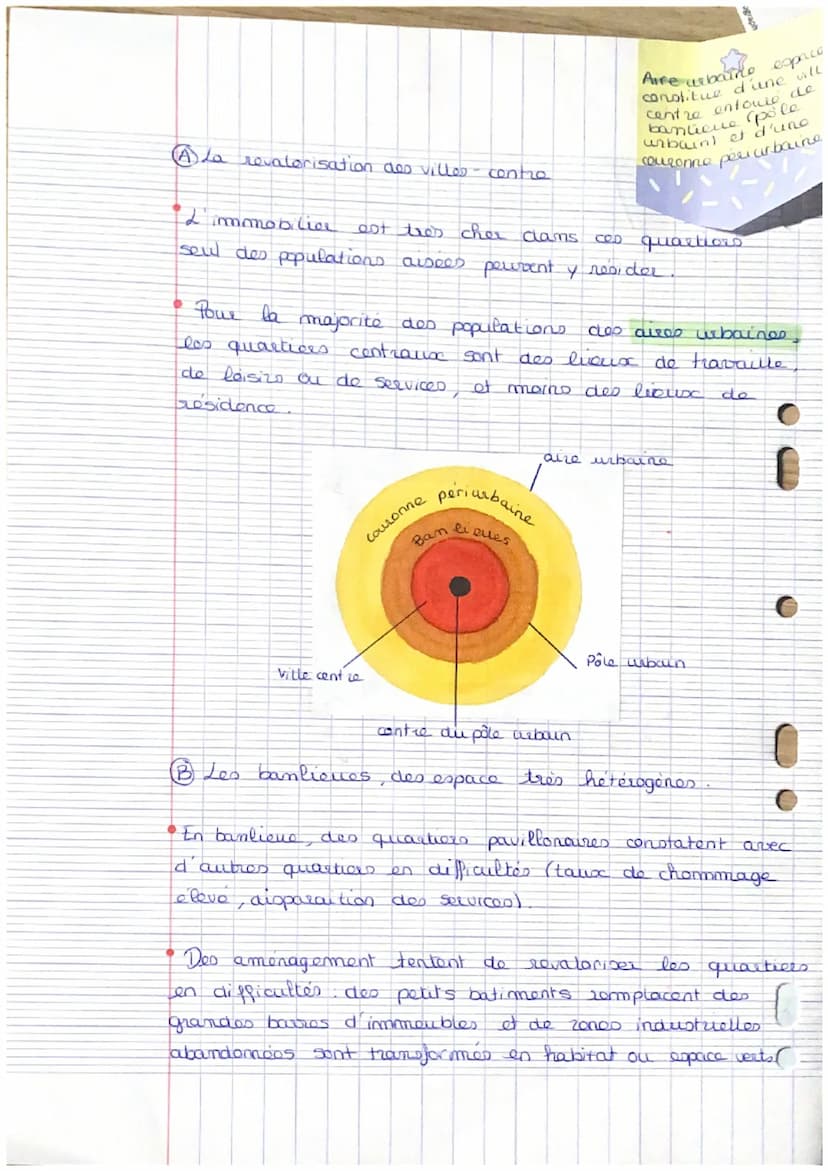 Aire urbaine espace
constitue d'une vill
centre entouré de
banlieue (pôle
urbain) et d'une
couronne périurbaine
Ⓐ La revalorisation des villes-centre
• L'immobilier est très cher dans ces quartiers
seul des populations aisées peuvent y résider.
• Pour la majorité des populations des aires urbaines,
les quartiers centraux sont des lieux de travaille,
de loisirs ou de services, et moins des lieux de
résidence.
aire urbaine
couronne périurbaine
Banlieues
Pôle urbain
Ville centre
centre du pôle urbain
Ⓑ Les banlieues, des espace très hétérogènes.
• En banlieue, des quartiers pavillonaires constatent avec
d'autres quartiers en difficultés (taux de chommage
élevé, disparaition des services).
• Des aménagement tentent de revaloriser les quartiers
en difficultés. des petits batiments remplacent des
grandes barres d'immmeubles et de zones industruelles
abandonnées sont transformés en habitat ou espace verts